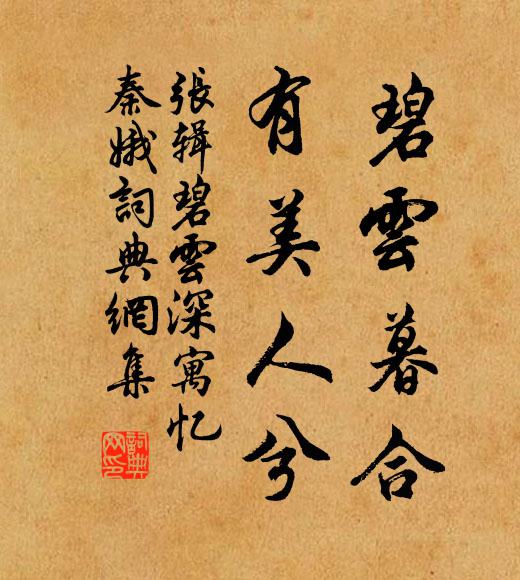 碧雲暮合
有美人兮
張輯碧雲深寓忆
秦娥詞典網集
詞典網印